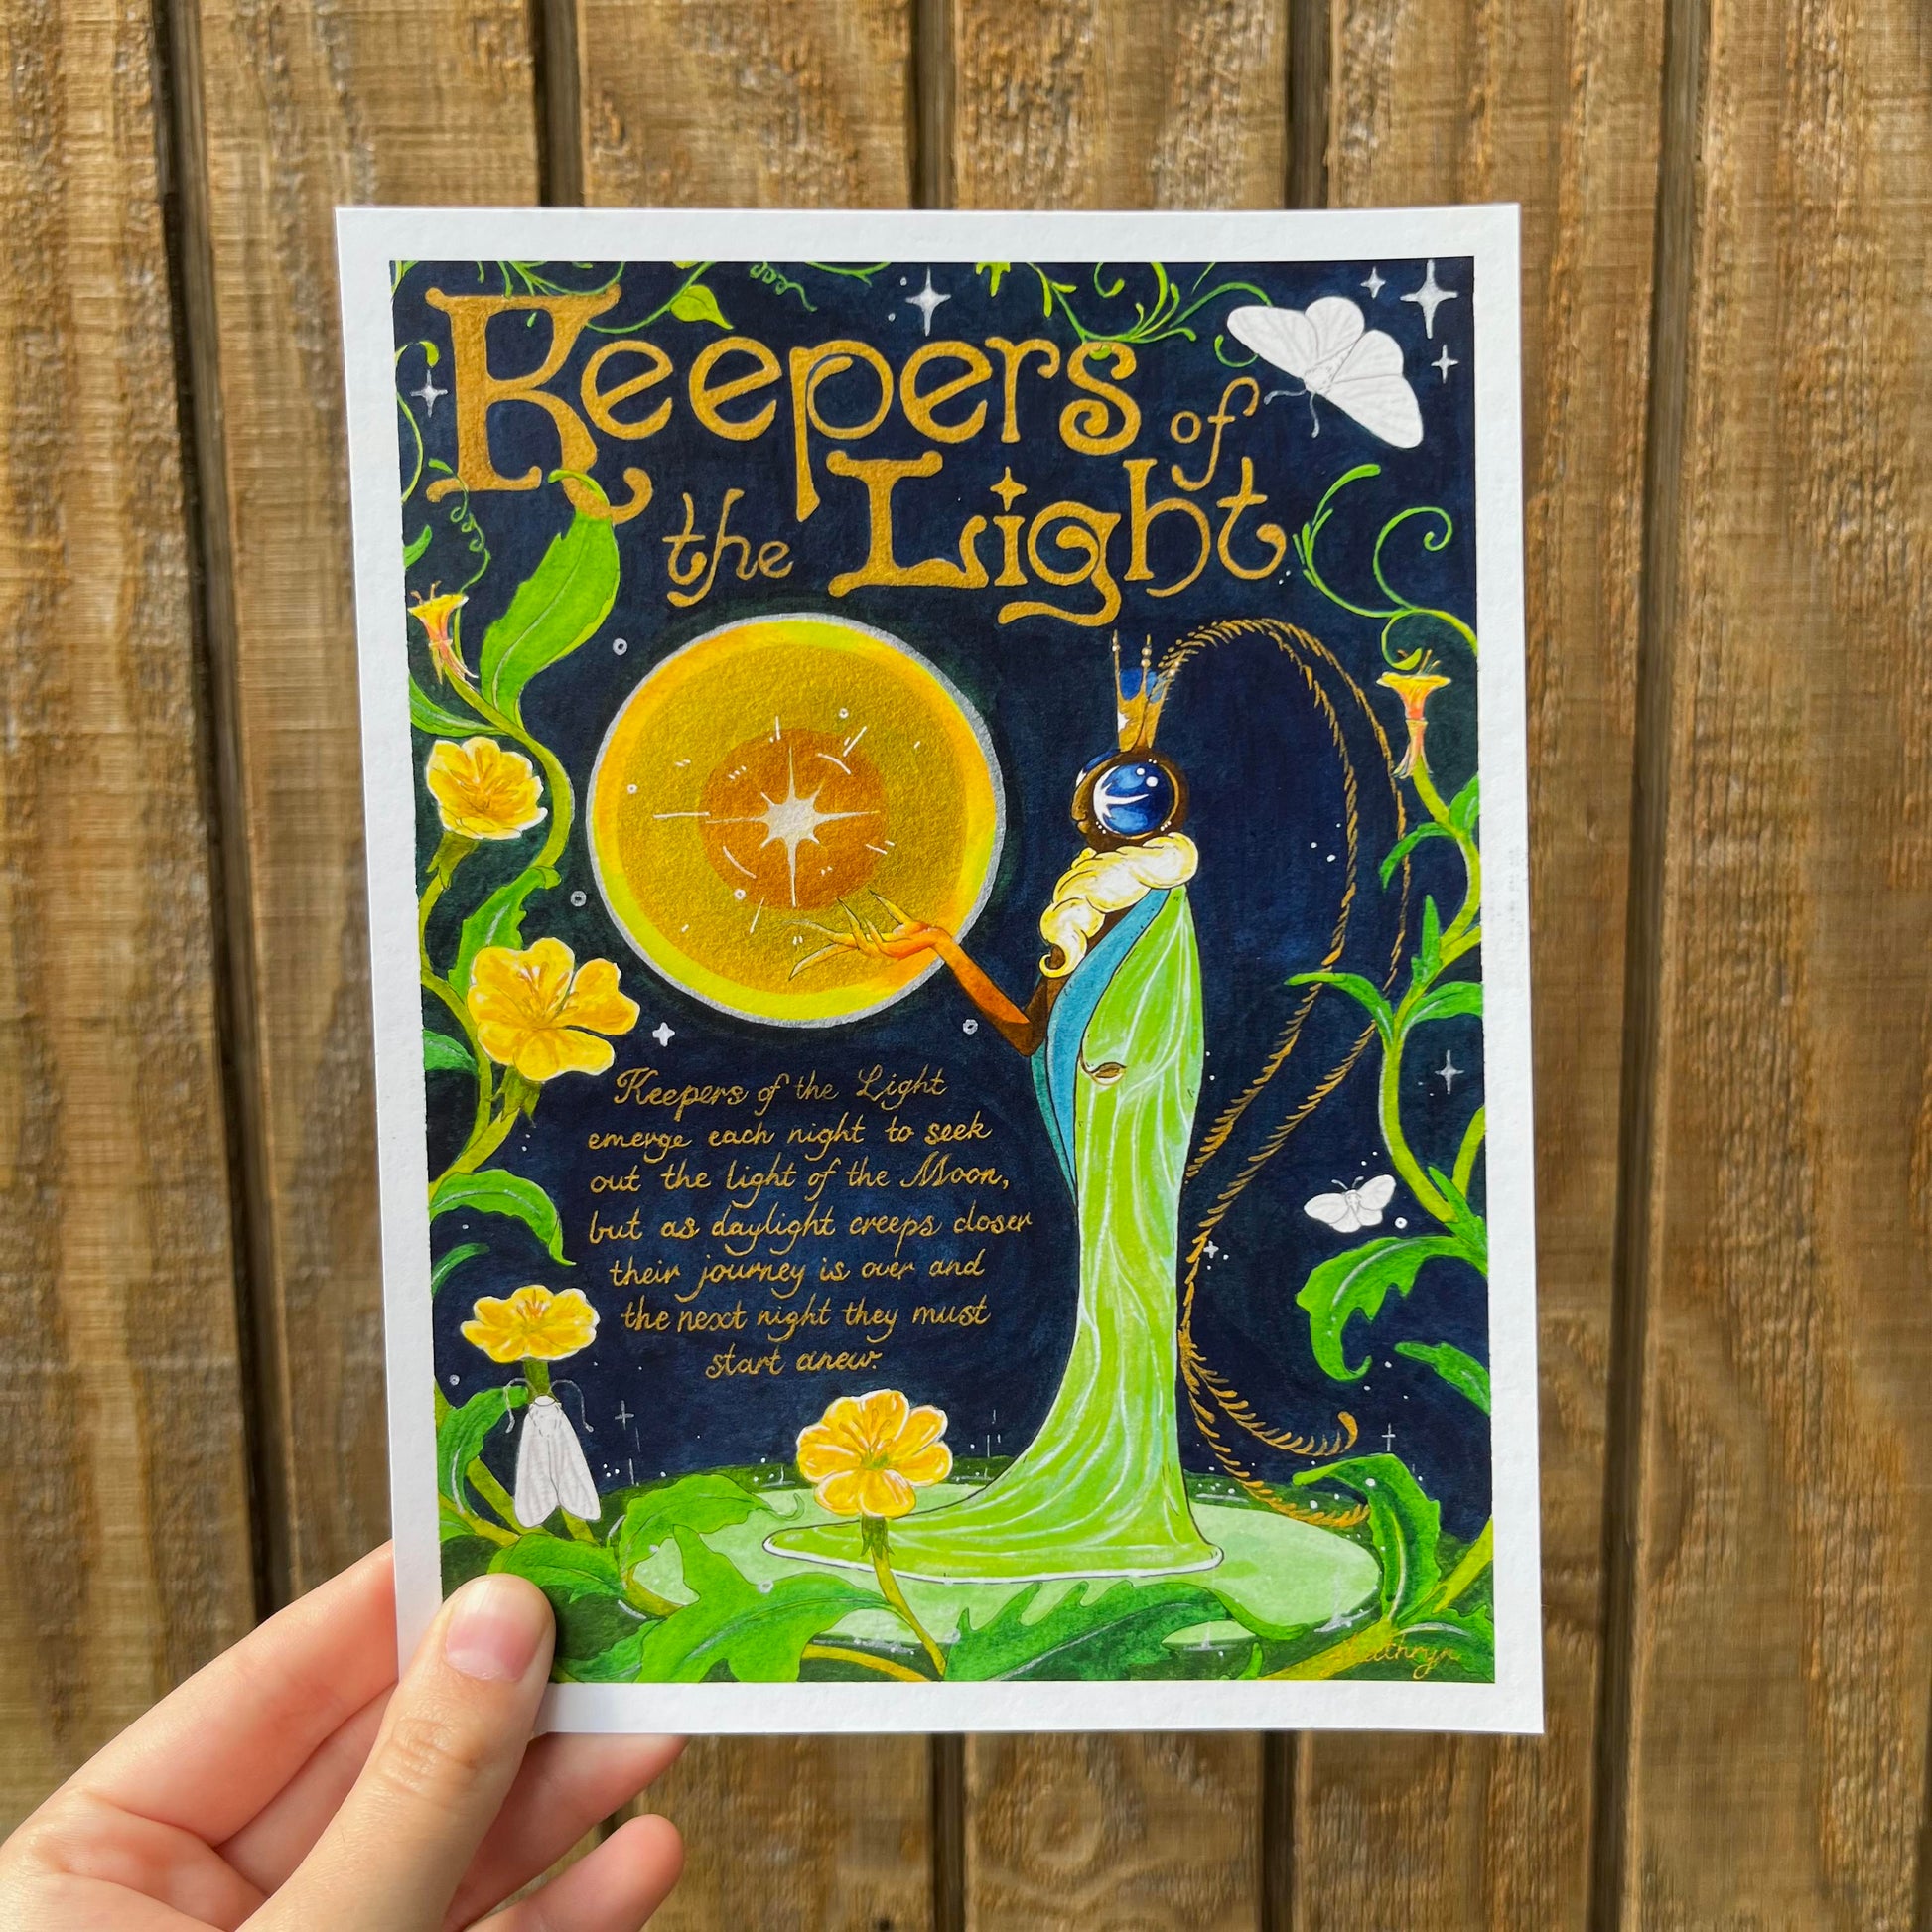 Keepers of
the Light
Keepers of the Light
emerge each night to seek
out the light of the Moon,
but as daylight creeps closer
their journey is over and
the next night they must
start anew.
Kathryn